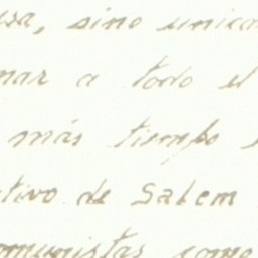 sa, sino unica
mar a todo el
más tiempo
tivo de Salem
omunistas como